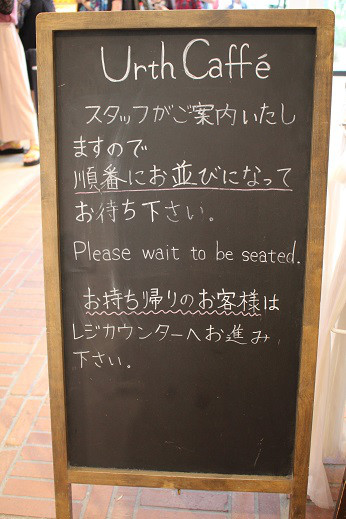 Urth Caffé
スタッフがご案内いたし
ますので
順番にお並びになって
お待ち下さい。
Please wait to be seated.
お持ち帰りのお客様は
レジカウンターへお進み
下さい。